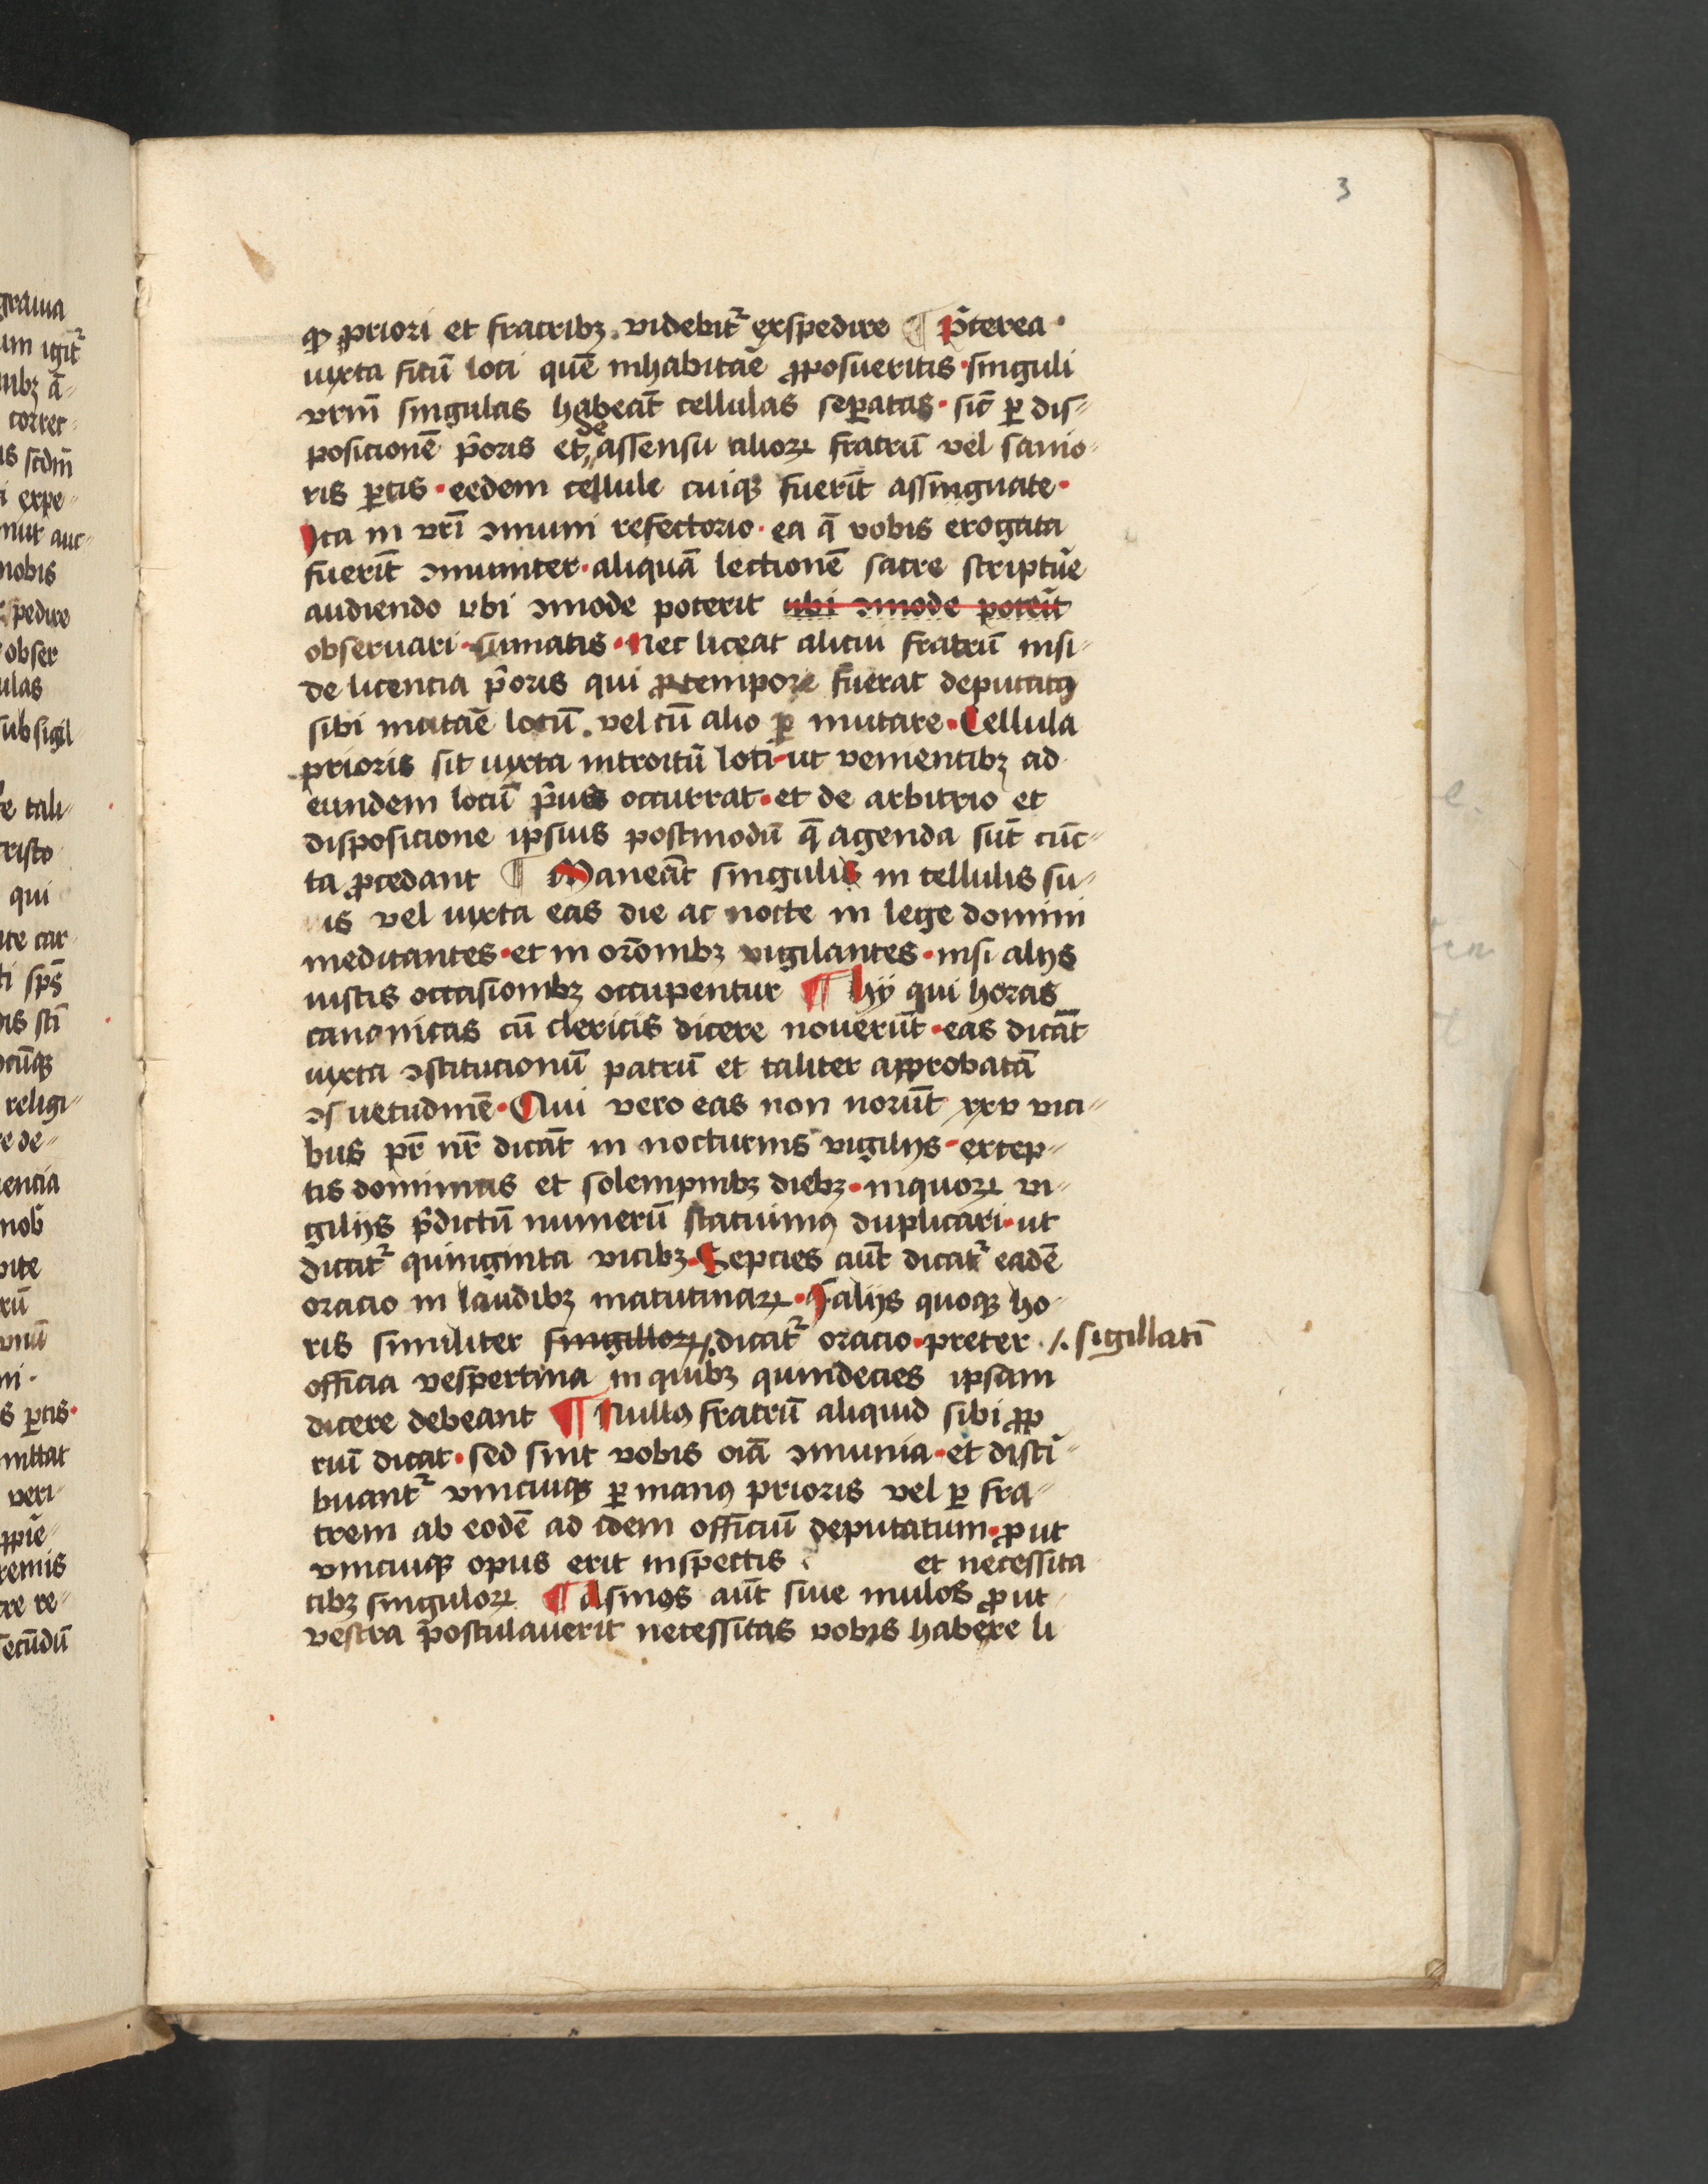 3
ꝙ priori et fratribꝫ · videbitᷣ exspedire ¶ p̄terea ·
iuxta sitū loci quē inhabitar̄e ꝓposueritis · singuli
vr̄m singulas habeāt cellulas seꝑatas · sic̄ ꝑ dis-
posicionē p̄oris et de assensu alioꝝ fratrū vel sanio-
ris ꝑtis · eedem cellule cuiqꝫ fuerīt assingnate ·
Ita in vr̄i ꝯmuni refectorio · ea q̄ vobis erogata
fuerīt ꝯmuniter · aliquā lectionē sacre scriptur̄e
audiendo vbi ꝯmode poterit ubi ꝯmode poter̄it
obseruari · sumatis · Nec liceat alicui fratrū nisi
de licencia p̄oris qui ꝓ tempore fuerat deputatꝯ
sibi mutar̄e locū · vel cū alio ꝑ mutare · Cellula
prioris sit iuxta introitū loci · ut venientibꝫ ad
eundem locū p̄us occurrat · et de arbitrio et
disposicione ipsius postmodū q̄ agenda sūt cūc-
ta ꝓcedant ¶ Maneāt singulis in cellulis su-
is vel iuxta eas die ac nocte in lege domini
meditantes · et in or̄onibꝫ vigilantes · nisi alijs
iustis occasionibꝫ occupentur ¶ hÿ qui horas
canonicas cū clericis dicere nouerūt · eas dicāt
iuxta ꝯstitucionū patrū et taliter approbatā
ꝯsuetudinē · Qui vero eas non norūt xxv vici-
bus pr̄ nr̄ dicāt in nocturnis vigilijs · excep-
tis dominicis et solempnibꝫ diebꝫ · in quoꝝ vi-
gilijs p̄dictū numerū statuimꝯ duplicari · ut
dicatᷣ quinginta vicibꝫ · Septies aūt dicatᷣ eadē
oracio in laudibꝫ matutinaꝝ · I alijs quoqꝫ ho-
ris similiter singilloꝝ /. dicatᷣ oracio · preter /. sigillatī
officia vespertina in quibꝫ quindecies ipsam
dicere debeant ¶ Nullꝯ fratrū aliquid sibi ꝓp
riū dicat · sed sint vobis oīa ꝯmunia · et disti-
buantᷣ vnicuiqꝫ ꝑ manꝯ prioris vel ꝑ fra-
trem ab eodē ad idem officiū deputatum · ꝓ ut
vnicuiqꝫ opus erit inspectis et necessita
tibꝫ singuloꝝ ¶ Asinos aūt siue mulos ꝓ ut
vestra postulauerit necessitas vobis habere li